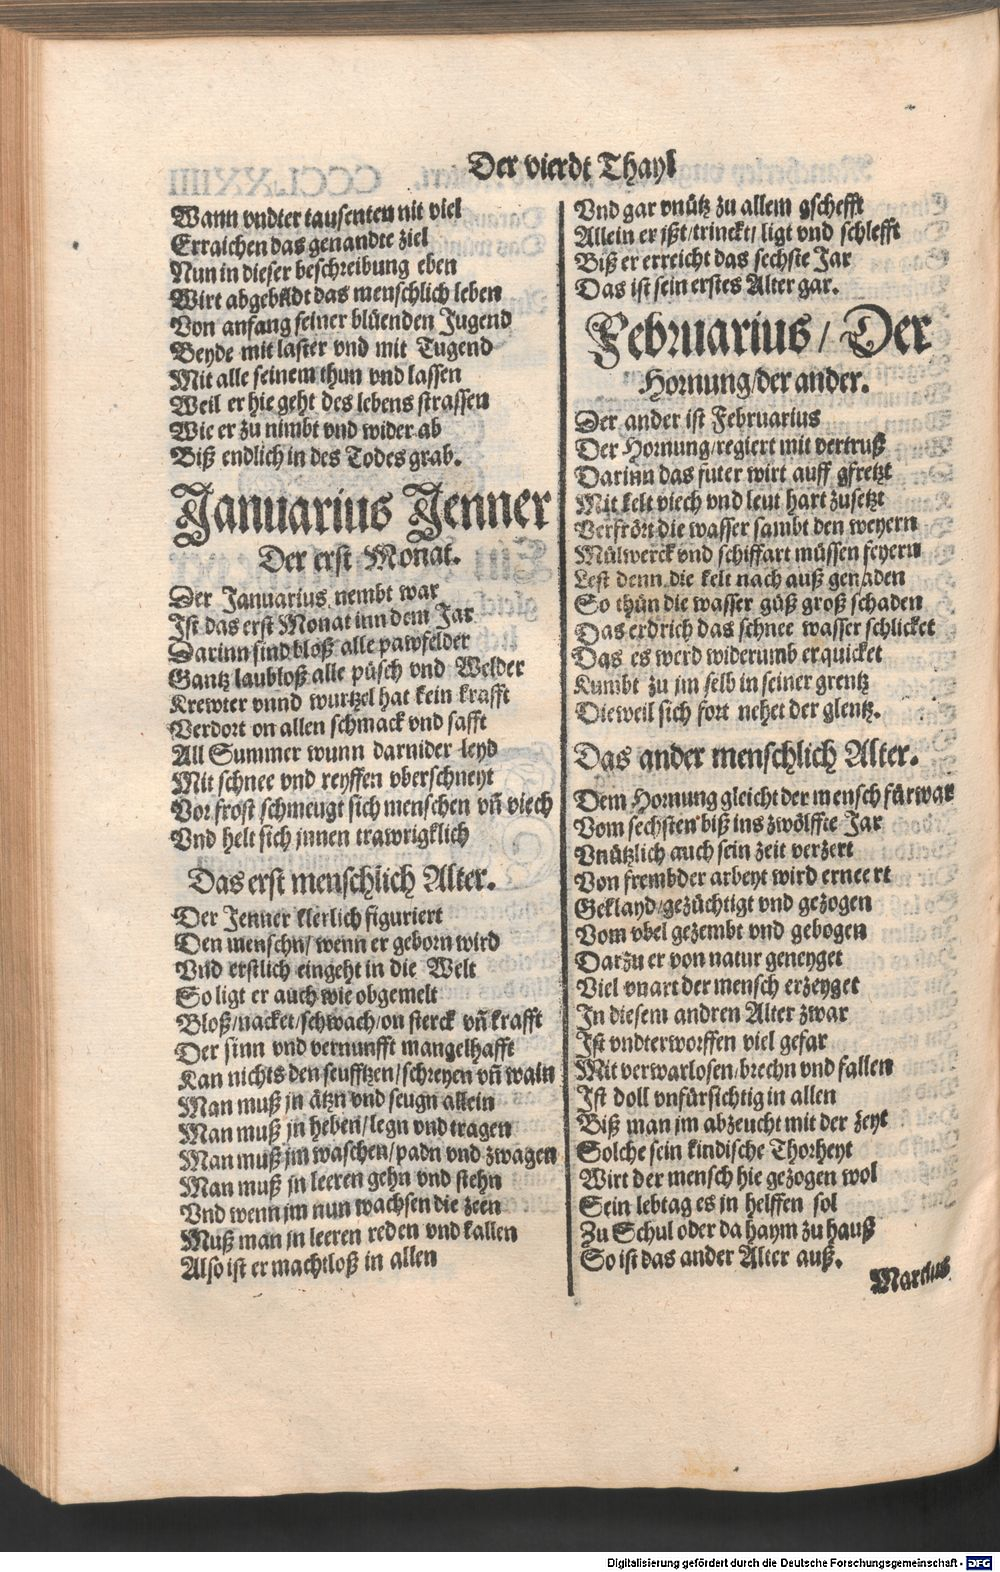 Der vierdt Thayl
Wann vndter tausenten nit viel
Erraichen das genandte ziel
Nun in dieser beschreibung eben
Wirt abgebildt das menschlich leben
Von anfang seiner blüenden Jugend
Beyde mit laster vnd mit Tugend
Mit alle seinem thun vnd lassen
Weil er hie geht des lebens strassen
Wie er zu nimbt vnd wider ab
Biß endlich in des Todes grab.
Januarius Jenner
Der erst Monat.
Der Januarius nembt war
Ist das erst Monat inn dem Jar
Darinn sind bloß alle pawfelder
Gantz laubloß alle püsch vnd Welder
Krewter vnnd wurtzel hat kein krafft
Verdort on allen schmack vnd safft
All Summer wunn darnider leyd
Mit schnee vnd reyffen vberschneyt
Vor frost schmeugt sich menschen vñ viech
Vnd helt sich jnnen trawrigklich
Das erst menschlich Alter.
Der Jenner klerlich figuriert
Den menschn/ wenn er geborn wird
Vnd erstlich eingeht in die Welt
So ligt er auch wie obgemelt
Bloß/nacket/schwach/on sterck vñ krafft
Der sinn vnd vernunfft mangelhafft
Kan nichts den seufftzen/schreyen vñ wain
Man muß jn ätzn vnd seugn allein
Man muß jn heben/legn vnd tragen
Man muß jm waschen/padn vnd zwagen
Man muß jn leeren gehn vnd stehn
Vnd wenn jm nun wachsen die zeen
Muß man jn leeren reden vnd kallen
Also ist er machtloß in allen
Vnd gar vnütz zu allem gschefft
Allein er jßt/trinckt/ligt vnd schlefft
Biß er erreicht das sechste Jar
Das ist sein erstes Alter gar.
Februarius/ Der
Hornung/der ander.
Der ander ist Februarius
Der Hornung/regiert mit vertruß
Darinn das futer wirt auff gfretzt
Mit kelt viech vnd leut hart zusetzt
Verfrört die wasser sambt den weyern
Mülwerck vnd schiffart müssen feyern
Lest denn die kelt nach auß genaden
So thün die wasser güß groß schaden
Das erdrich das schnee wasser schlicket
Das es werd widerumb erquicket
Kumbt zu jm selb in seiner grentz
Dieweil sich fort nehet der glentz.
Das ander menschlich Alter.
Dem Hornung gleicht der mensch fürwar
Vom sechsten biß ins zwölffte Jar
Vnützlich auch sein zeit verzert
Von frembder arbeyt wird erneert
Geklayd/gezüchtigt vnd gezogen
Vom vbel gezembt vnd gebogen
Darzu er von natur geneyget
Viel vnart der mensch erzeyget
In diesem andren Alter zwar
Ist vndterworffen viel gefar
Mit verwarlosen/brechn vnd fallen
Ist doll vnfürsichtig in allen
Biß man jm abzeucht mit der zeyt
Solche sein kindische Thorheyt
Wirt der mensch hie gezogen wol
Sein lebtag es jn helffen sol
Zu Schul oder da haym zu hauß
So ist das ander Alter auß.
Martius
Digitalisierung gefördert durch die Deutsche Forschungsgemeinschaft - DFG